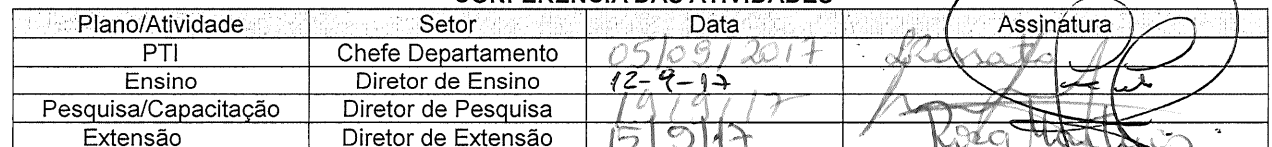 CONFERÊNCIA DAS ATIVIDADES
Plano/Atividade Setor Data Assinatura
PTI Chefe Departamento 05/09/2017
Ensino Diretor de Ensino 12-9-17
Pesquisa/Capacitação Diretor de Pesquisa 19/9/17
Extensão Diretor de Extensão 15/9/17 Rosa